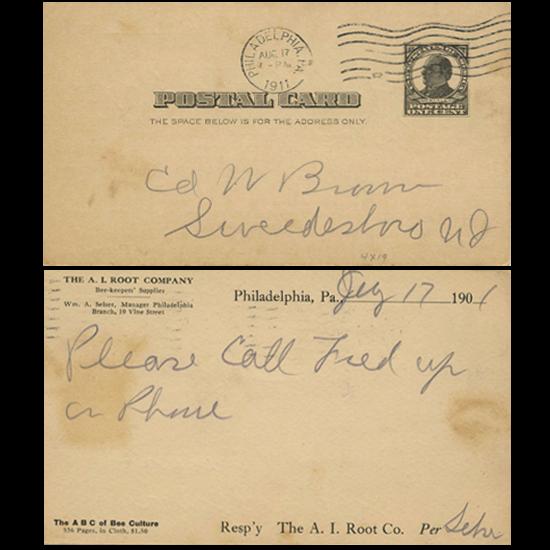 PHILADELPHIA, PA.
AUG 17
1911
POSTAL CARD
THE SPACE BELOW IS FOR THE ADDRESS ONLY.
POSTAGE
ONE CENT
Ed W Brown
Swedesboro NJ
4x19
THE A. I. ROOT COMPANY
Bee-keepers' Supplier
Wm. A. Selser, Manager Philadelphia
Branch, 10 Vine Street
Philadelphia, Pa. 17 190
Please Call Fred up
on Phone
The A B C of Bee Culture
536 Pages, in Cloth, $1.50
Resp'y The A. I. Root Co. Per Selser